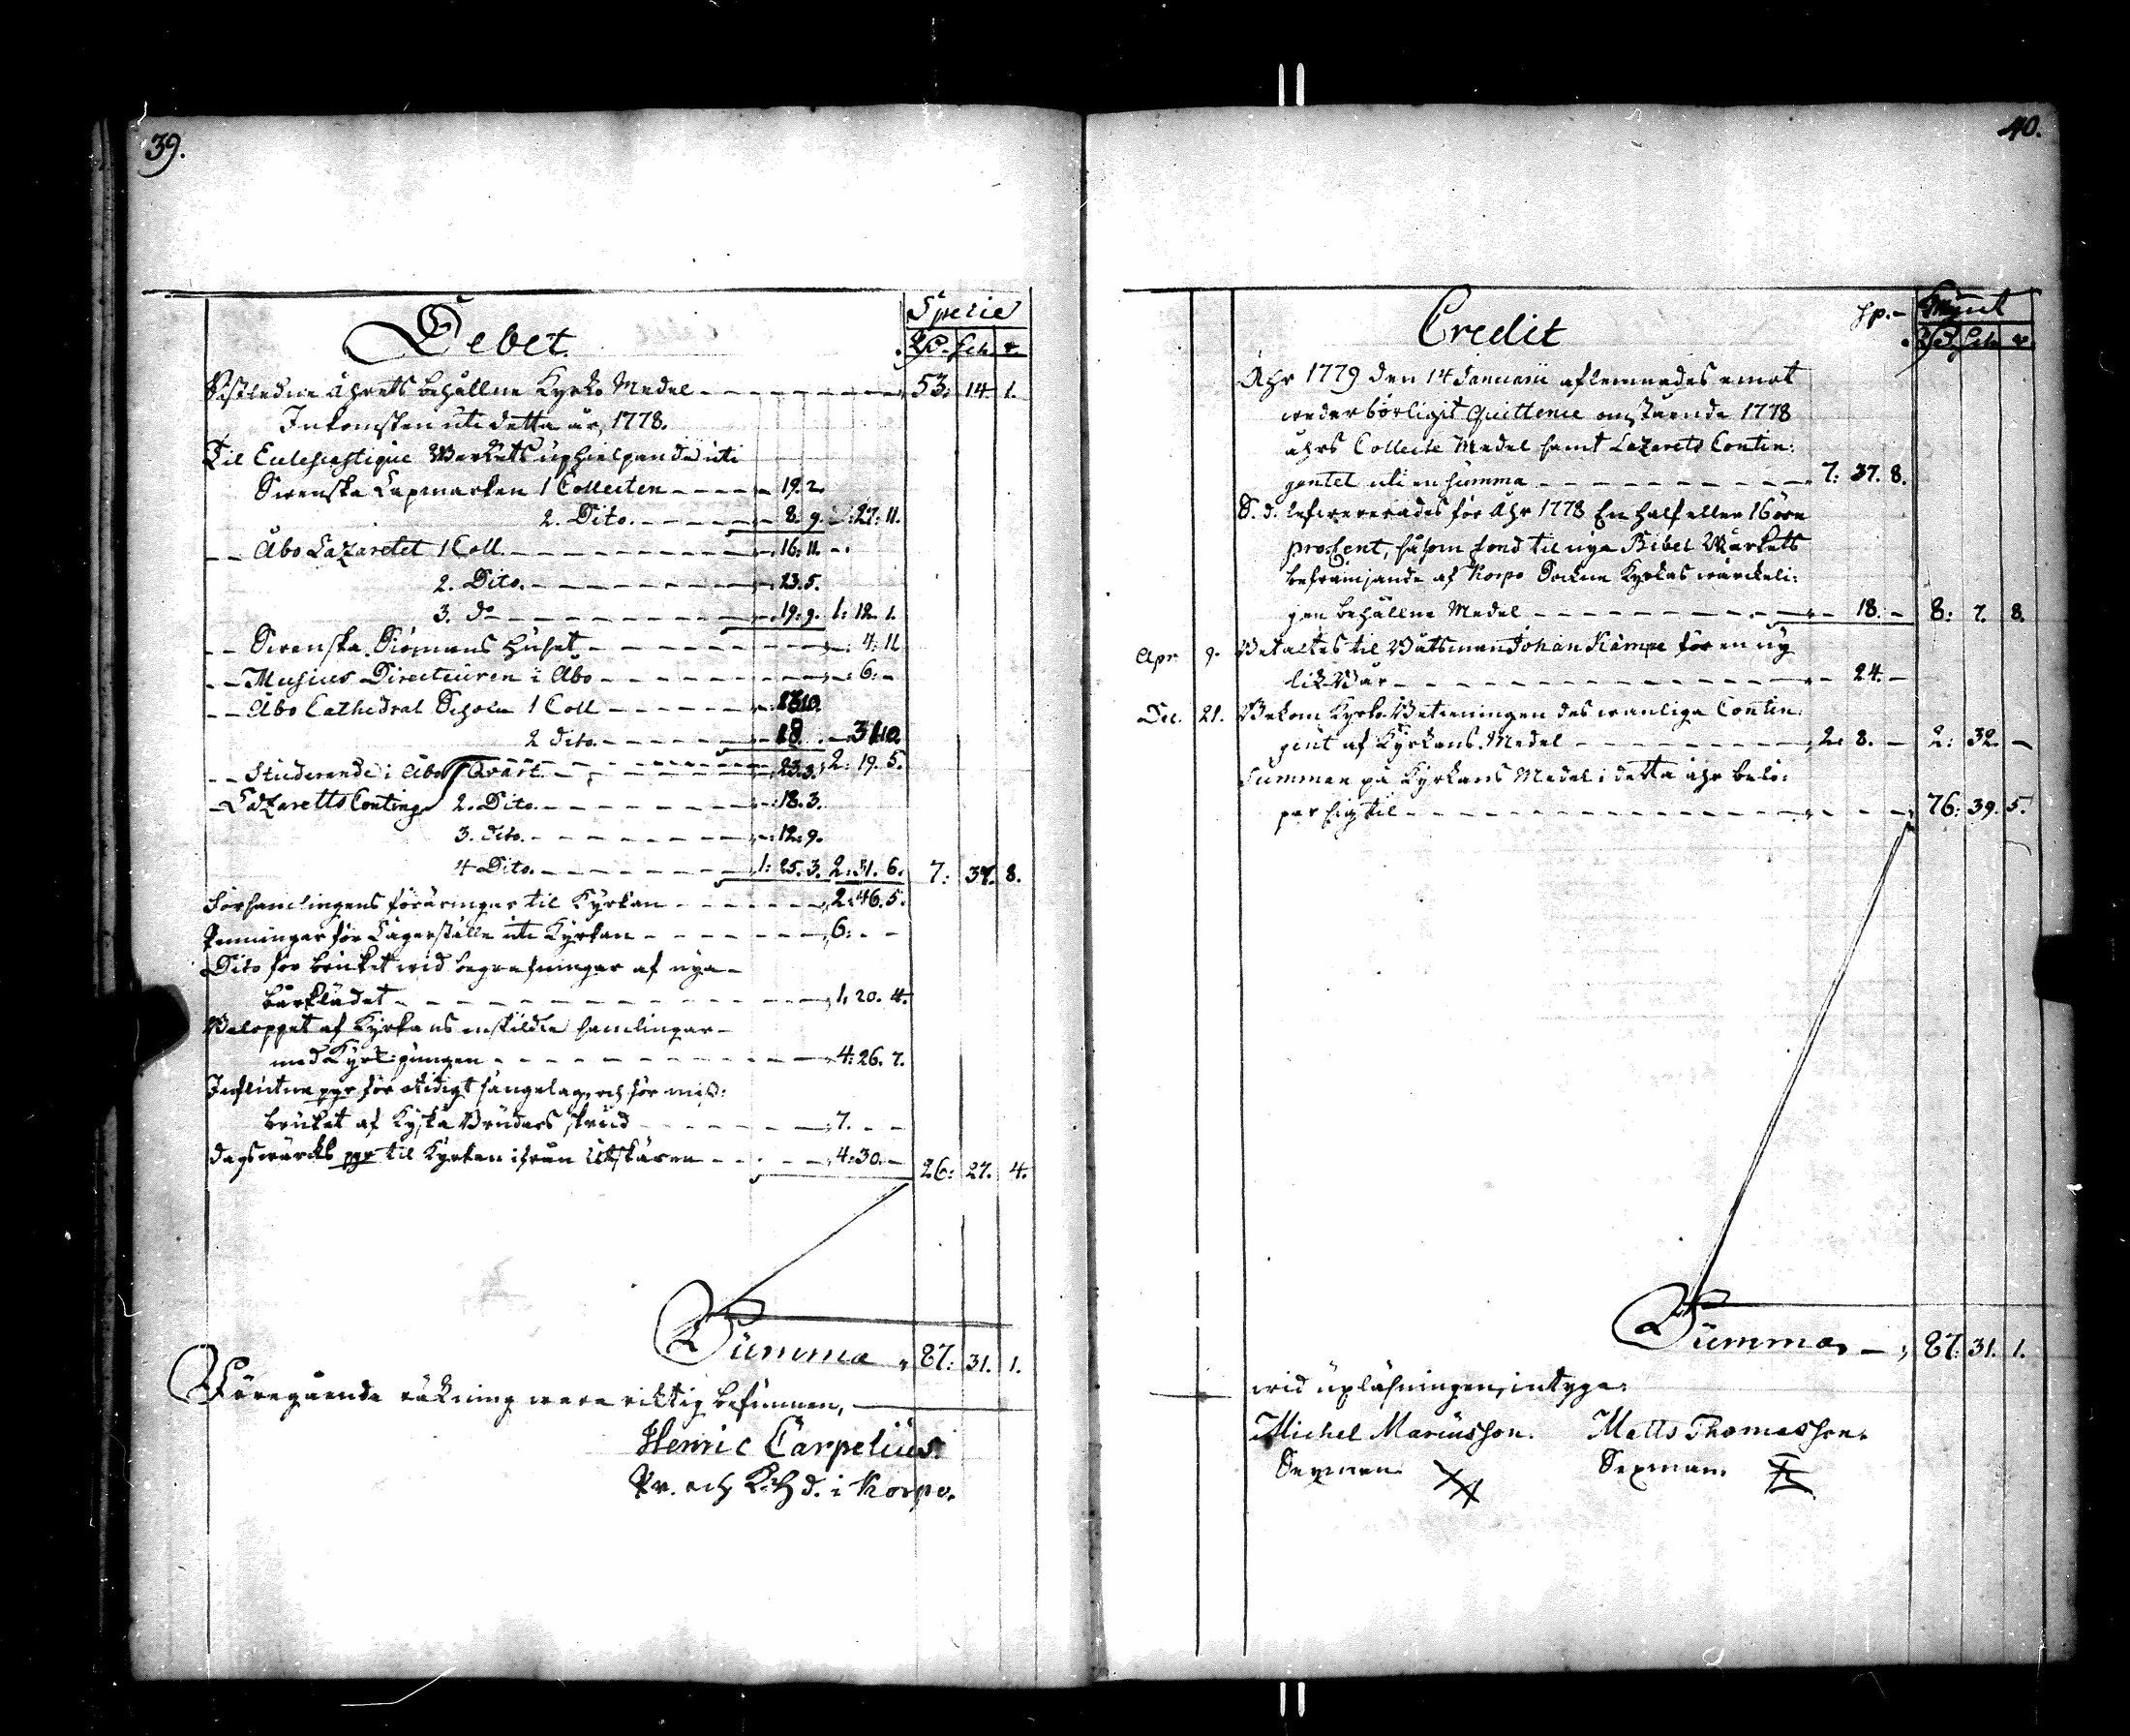 39.
Debet.
Specie
Rd. sch. r.
Sistledne åhrets behållne Kyrko Medel 53: 14. 1.
Inkomsten uti detta år, 1778.
Til Ecclesiastique Werkets uphielpande uti
Swenska Lapmarken 1 Collecten - 19. 2.
2. Dito. - 8. 9. -: 27: 11.
Åbo Lazaretet 1 Coll. - 16. 11.
2. Dito. - 23. 5.
3. do - 19. 9. 1: 12. 1.
Swenska Siömans Huset - 4: 11
Musicus Directeuren i Åbo - 6: -
Åbo Cathedral Schola 1 Coll
2 dito. - 18. - 31.10.
Studerande i Åbo - 2: 19. 5.
Lazaretts Conting. 1 Qvart. - 23. 3.
2. Dito. - 18. 3.
3. dito. - 12. 9.
4 Dito. - 1: 25. 3. 2: 31. 6. 7: 37. 8.
Församlingens föräringar til Kyrkan - 2: 46. 5.
Penningar för Lägerställe uti Kyrkan - 6: - -
Dito för bruket wid begrafningar af nya
bårklädet - 1. 20. 4.
Beloppet af Kyrkans enskildte samlingar
med Kyrk: pungen - 4: 26. 7.
Influtne pgr för otidigt sängelag, och för miss:
bruket af Kyska Brudars skrud - 7. - -
Dagswärcks pgr til Kyrkan ifrån Utskären - 4: 30. - 26: 27. 4.
Summa 87: 31. 1.
Föregående räkning wara riktig befunnen,
Henric Carpelius.
Pr. och Kchd. i Korpo.
40.
Credit
Sp.
Mynt
Rd. sch. r.
Åhr 1779 den 14 Januarii aflemnades emot
wederbörligit Quittence omstående 1778
åhrs Collecte Medel samt Lazarets Contin:
gentet uti en summa - 7: 37. 8.
S. d. lefwererades för Åhr 1778 En half eller 16 öre
procent, såsom fond til nya Bibel Wärkets
befrämjande af Korpo Sockne Kyrkas wärckeli:
gen behållne Medel - 18. - 8: 7. 8.
Apr. 9. Betaltes til Båtsman Johan Kämpe för en ny
likbår - 24. -
Dec. 21. Bekom Kyrko Betieningen des wanliga Contin:
gent af Kyrkans Medel - 2: 8. - 2: 32. -
Summan på Kyrkans Medel i detta åhr belö:
per sig til - 76: 39. 5.
Summa - 87: 31. 1.
wid upläsningen, intyga:
Michel Mariusson. Matts Thomasson.
Sexman. Sexman.